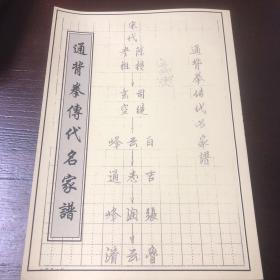 通背拳傳代名家譜
通背拳傳代名家譜
宋代
陳摶
司徒
老祖
玄空
白云峰
吉志通
張潤峰
云清